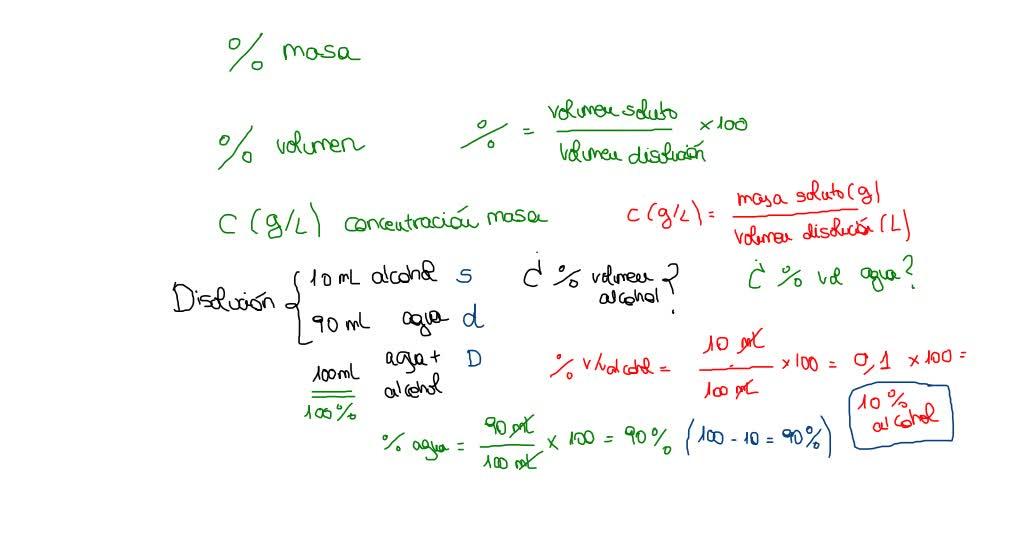 % masa
% volumen % = volumen soluto / volumen disolución × 100
C (g/L) concentración masa C (g/L) = masa soluto (g) / volumen disolución (L)
Disolución { 10 mL alcohol s ¿% volumen alcohol? ¿% vol agua?
90 ml agua d
100 ml agua + alcohol D % v/v alcohol = 10 mL / 100 mL × 100 = 0,1 × 100 =
100% 10% alcohol
% agua = 90 mL / 100 mL × 100 = 90% (100 - 10 = 90%)